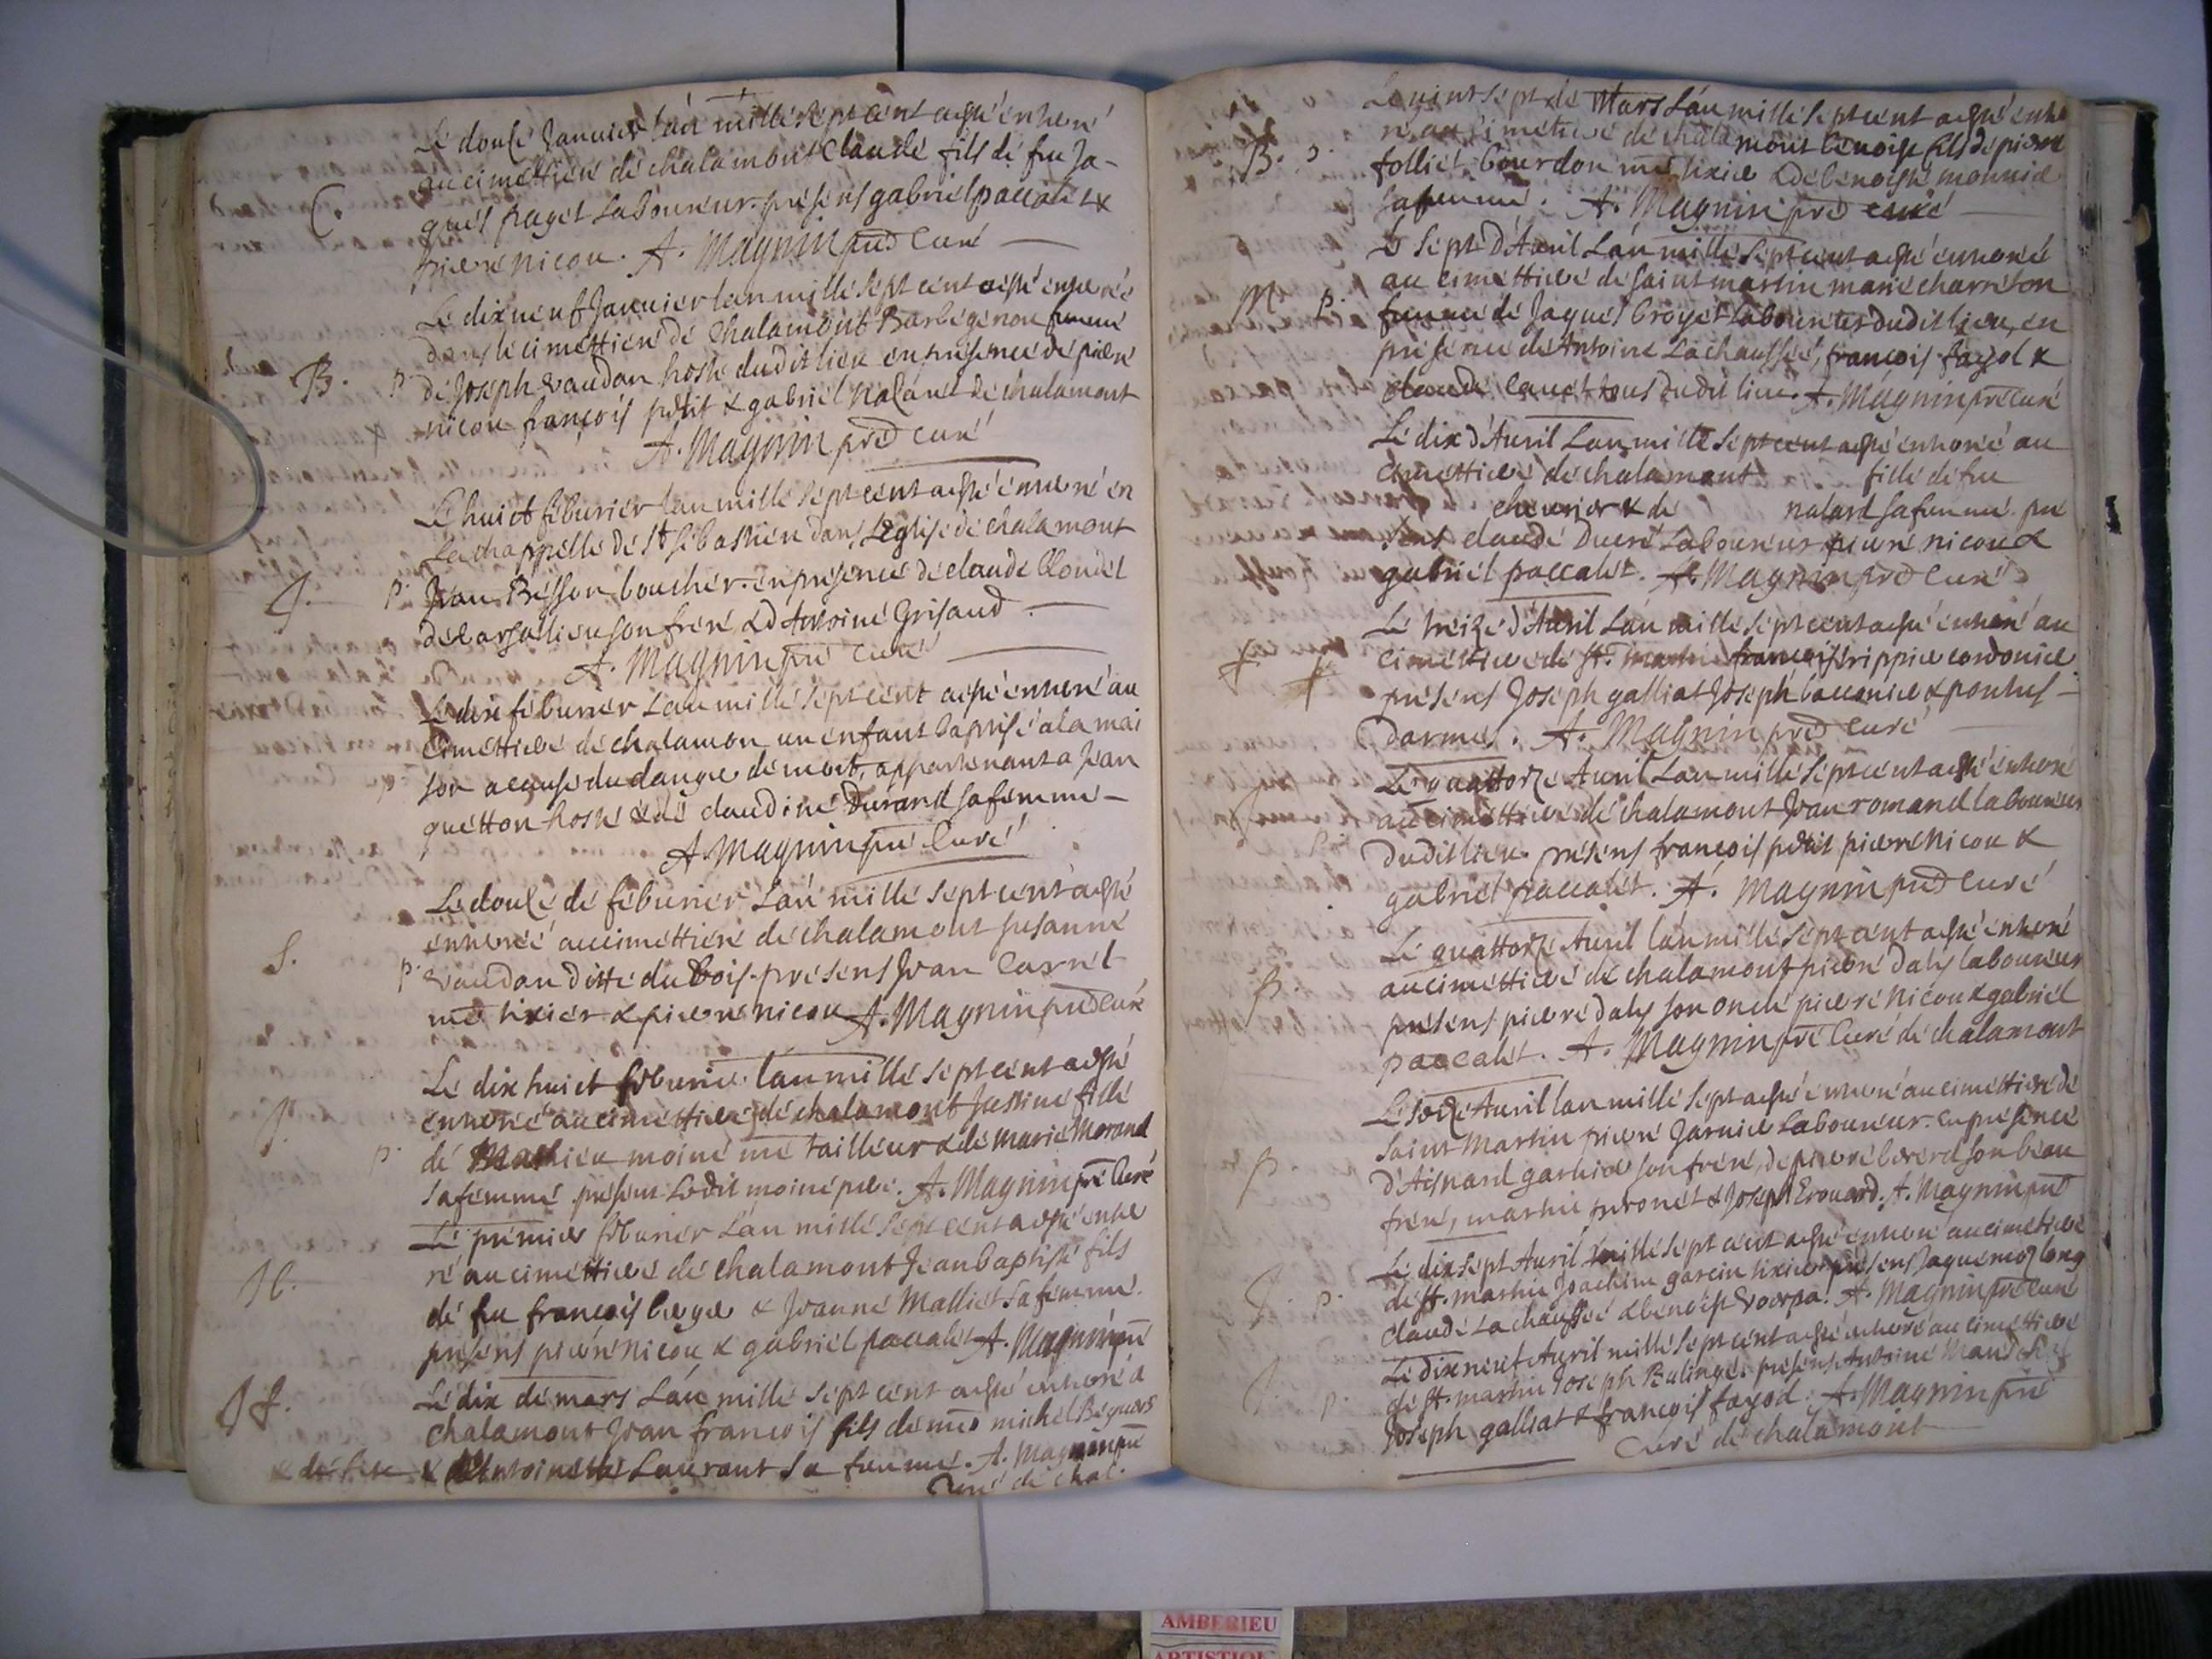 Lé douse Januier l'an mille sept cent a esté enterré
au cimettiere de chalamont Claude fils de feu Ja-
C.
ques paget Laboureur. présens gabriel paccalet &
pierre nicou. A. Magnin prê Curé
Le dix neuf Januier lan mille sept cent a esté enterrée
dans le cimettiere de Chalamont Barbe genou femme
B. p.
de Joseph Vaudan hoste dudit lieu en présence de pierre
nicou françois petit & gabriel de chalamont
A. Magnin prê curé
Le huict feburier lan mille sept cent a esté enterré en
La chappelle de St sébastien dans L'église de chalamont
J. p.
Jean Besson boucher. en présence de claude Blondel
son frere & d'Antoine Grisaud.
A. Magnin prê Curé
Le dix feburier L'an mille sept cent a esté enterré au
Cimettiere de chalamon un enfant baptisé a la mai
son a cause du danger de mort, appartenant a Jean
quetton hoste & de claudine Durand sa femme
A. Magnin prê Curé
Le douse de feburier L'an mille sept cent a esté
enterrée au cimettiere de chalamont susanne
S. p.
Vaudan ditte du bois. présens Jean Carrel
me tixier & pierre nicou A. Magnin prê Curé
Le dix huict feburier l'an mille sept cent a esté
enterrée au cimettiere de chalamont Justine fille
J. p.
de Mathieu moine me tailleur & de Marie Morand
sa femme présent Ledit moine pere. A. Magnin prê Curé
Le premier feburier L'an mille sept cent a esté enter
ré au cimettiere de chalamont Jean baptiste fils
de feu françois berger & Jeanne Malliet sa femme.
présens pierre nicou & gabriel paccalet A. Magnin prê
Le dix de mars L'an mille sept cent a esté enterré a
J f.
chalamont Jean françois fils de michel
& Antoinette Laurant sa femme. A. Magnin prê
Curé de chal.
Le vint sept de Mars L'an mille sept cent a esté enter
ré au cimetiere de chalamont benoist fils de pierre
B. p.
folliet bourdon me tixier & de benoiste monnier
sa femme. A. Magnin prê curé
Le sept d'Auril L'an mille sept cent a esté enterrée
au cimettiere de saint martin marie charreton
M p.
femme de Jaques broyet Laboureur dudit lieu, en
présence de Antoine Lachaussée, françois fayol &
claude Canet tous dudit lieu. A. Magnin prê Curé
Le dix d'Auril L'an mille sept cent a esté enterré au
cimettiere de chalamont fille de feu
cheurier & de nalard sa femme. pre
sens claude Ducré Laboureur pierre nicou &
gabriel paccalet. A. Magnin prê Curé
Le treize d'Auril L'an mille sept cent a esté enterré au
f
cimettiere de St. martin françois rippier cordonier
présens Joseph galliat Joseph & pontus
darmes. A. Magnin prê Curé
Le quattorze Auril L'an mille sept cent a esté enterré
au cimettiere de chalamont Jean romand laboureur
dudit lieu. présens françois petit pierre Nicou &
gabriel paccalet. A. Magnin prê Curé
Le quattorze Auril l'an mille sept cent a esté enterré
au cimettiere de chalamont pierre dalys laboureur
P.
présens pierre dalys son oncle pierre nicou & gabriel
paccalet. A. Magnin prê Curé de chalamont
Le seize Auril l'an mille sept a esté enterré au cimettiere de
saint Martin pierre Jarnier Laboureur. en présence
P.
d'Aisnard garnier son frere, de pierre bererd son beau
frere, martin & Joseph Erouard. A. Magnin prê
Le dix sept Auril mille sept cent a esté enterré au cimetiere
de St. martin Joachim garcin tixier présens Jaquemoz long
J. p.
Claude Lachaussée & benoist A. Magnin prê Curé
Le dix neuf Auril mille sept cent a esté enterré au cimettiere
de St. martin Joseph présens Antoine
J. p.
Joseph galliat & françois fayol. A. Magnin prê
Curé de chalamont
AMBERIEU